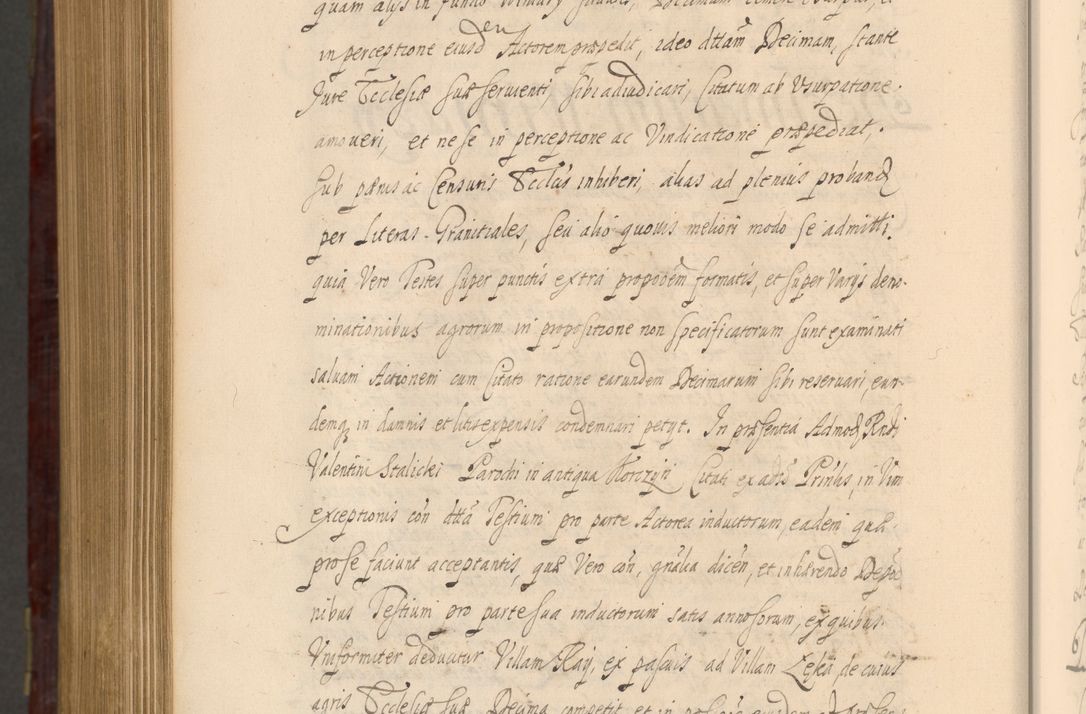 quam alys in fundo
in perceptione eiusd en Actorem præpedit, ideo dttam Decimam, stante
Jure Ecclesiæ suæ servienti, sibi adiudicari, Citatum ab Vsurpatione
amoveri, et ne se in perceptione ac Vindicatione præpediat,
sub pænis ac Censuris Eccles inhiberi, alias ad plenius proband
per Literas Granitiales, seu alio quovis meliori modo se admitti.
quia Vero Testes super punctis extra propoõem formatis, et super Varys deno-
minationibus agrorum in propositione non specificatorum sunt examinati
salvam Actionem cum Citato ratione earundem Decimarum sibi reservari, eun-
demq in damnis et litis expensis condemnari petyt. In præsentia Admod Rndi
Valentini Stalicki Parochi in antiqua Korczyn Citati ex adõ Prinlis, in Vim
exceptionis cõn dttã Testium pro parte Actorea inductorum, eadem quæ
pro se faciunt acceptantis, quæ Vero cõn, gnãlia dicen, et inhærendo Depõ
nibus Testium pro parte sua inductorum satis annosorum, ex quibus
Vniformiter deducitur Villam Kay, ex pascuis ad Villam Łęka, de cuius
agris Ecclesiæ suæ Decima competit, et in